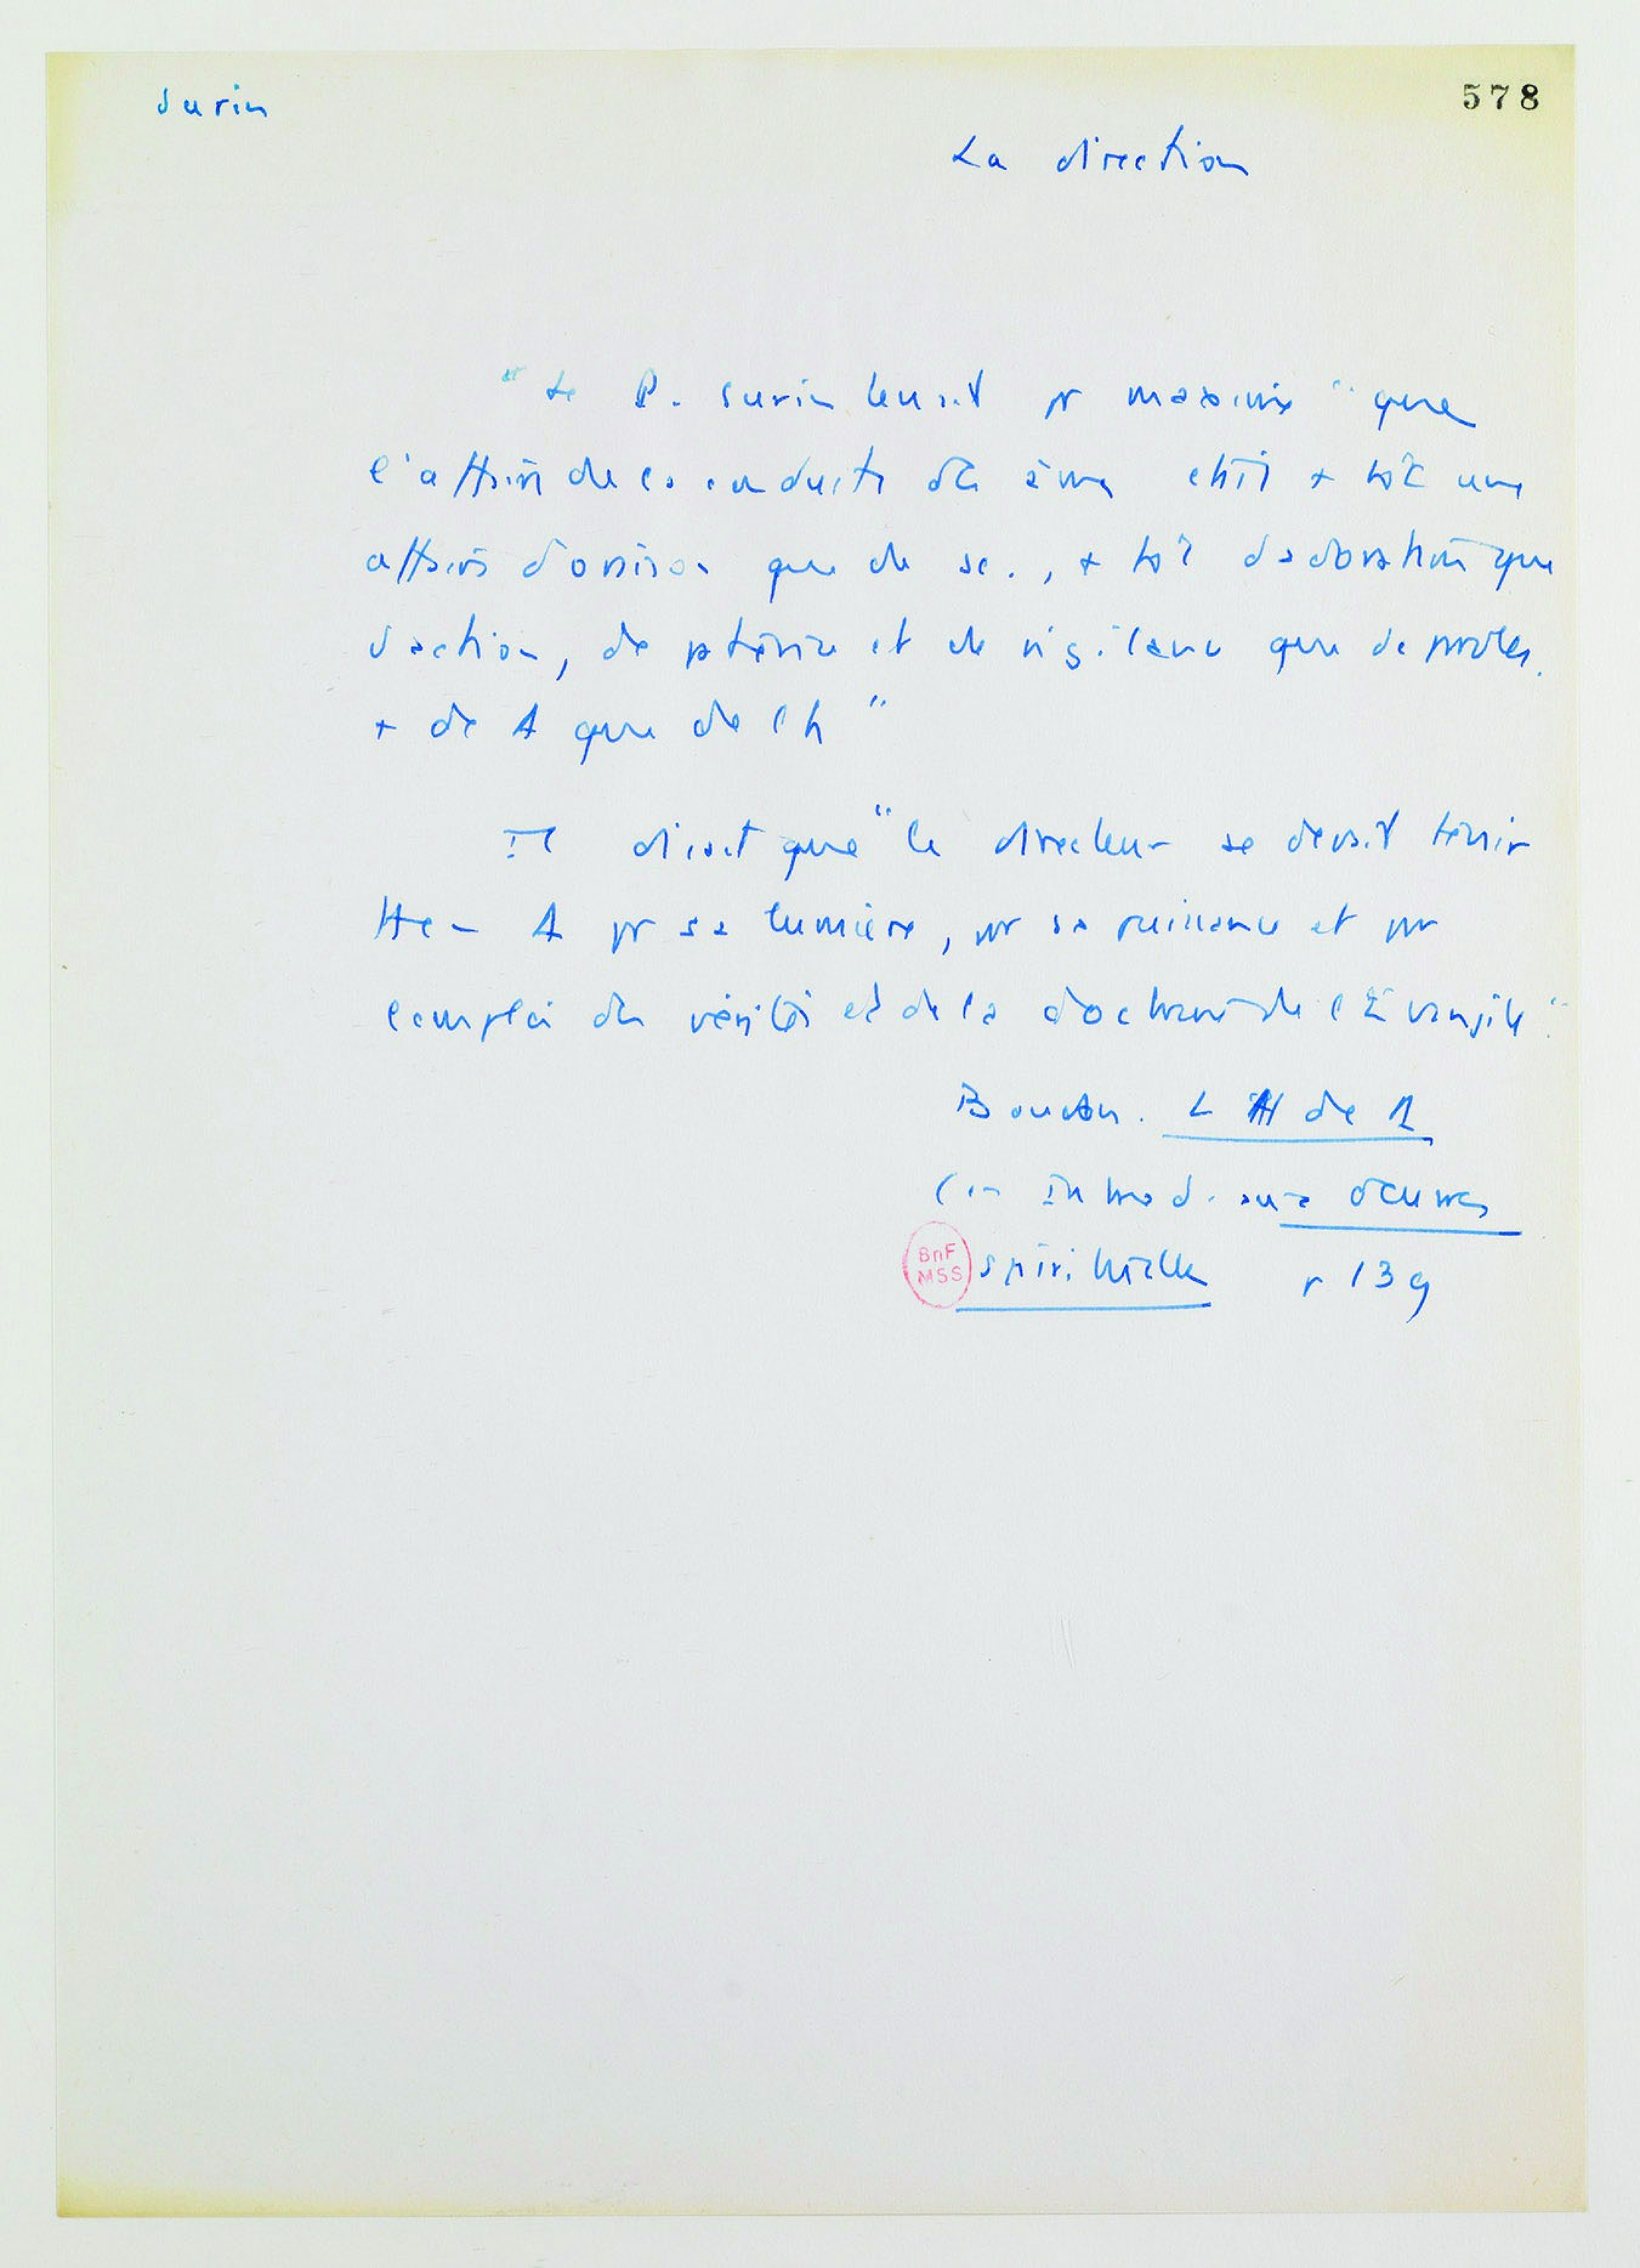 Surin
578
La direction
" Le P. Surin tenait pr maxime " que
l'affaire de la conduite des âmes était + tôt une
affaire d'oraison que de sc., + tôt d'adoration que
d'action, de patience et de vigilance que de paroles,
+ de A que de l'h "
Il disait que " le directeur se devait tenir
A pr sa lumière, pr sa puissance et pr
l'emploi des vérités et de la doctrine de l'Evangile "
Boudon. L H de
( in Introd. aux Œuvres
BnF
MSS
spirituelles p 139